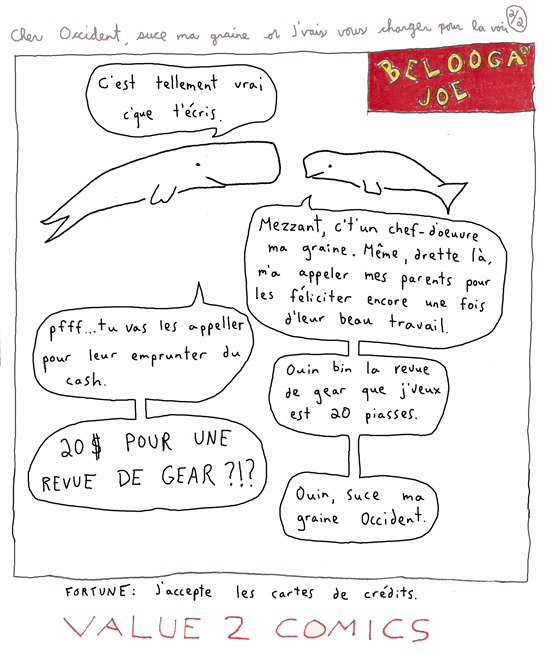 Cher Occident, suce ma graine or j'vais vous charger pour la voir 2/2
BELOOGA
JOE
C'est tellement vrai
c'que t'écris.
Mezzant, c't'un chef-d'oeuvre
ma graine. Même, drette là,
m'a appeler mes parents pour
les féliciter encore une fois
d'leur beau travail.
pfff...tu vas les appeller
pour leur emprunter du
cash.
Ouin bin la revue
de gear que j'veux
est 20 piasses.
20$ POUR UNE
REVUE DE GEAR ?!?
Ouin, suce ma
graine Occident.
FORTUNE: J'accepte les cartes de crédits.
VALUE 2 COMICS